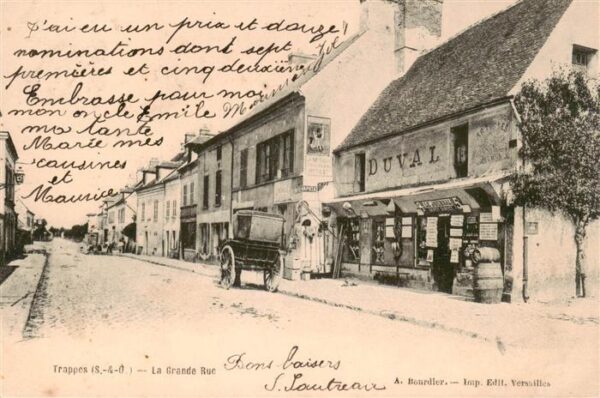 J'ai eu un prix et douze
nominations dont sept
premières et cinq deuxièmes
Embrasse pour moi
mon oncle Emile
ma tante
Marée mes
cousines
et
Maurice
DUVAL
Trappes (S.-&-O.) — La Grande Rue
Bons baisers
S. Lautreau
A. Bourdier. — Imp. Edit. Versailles